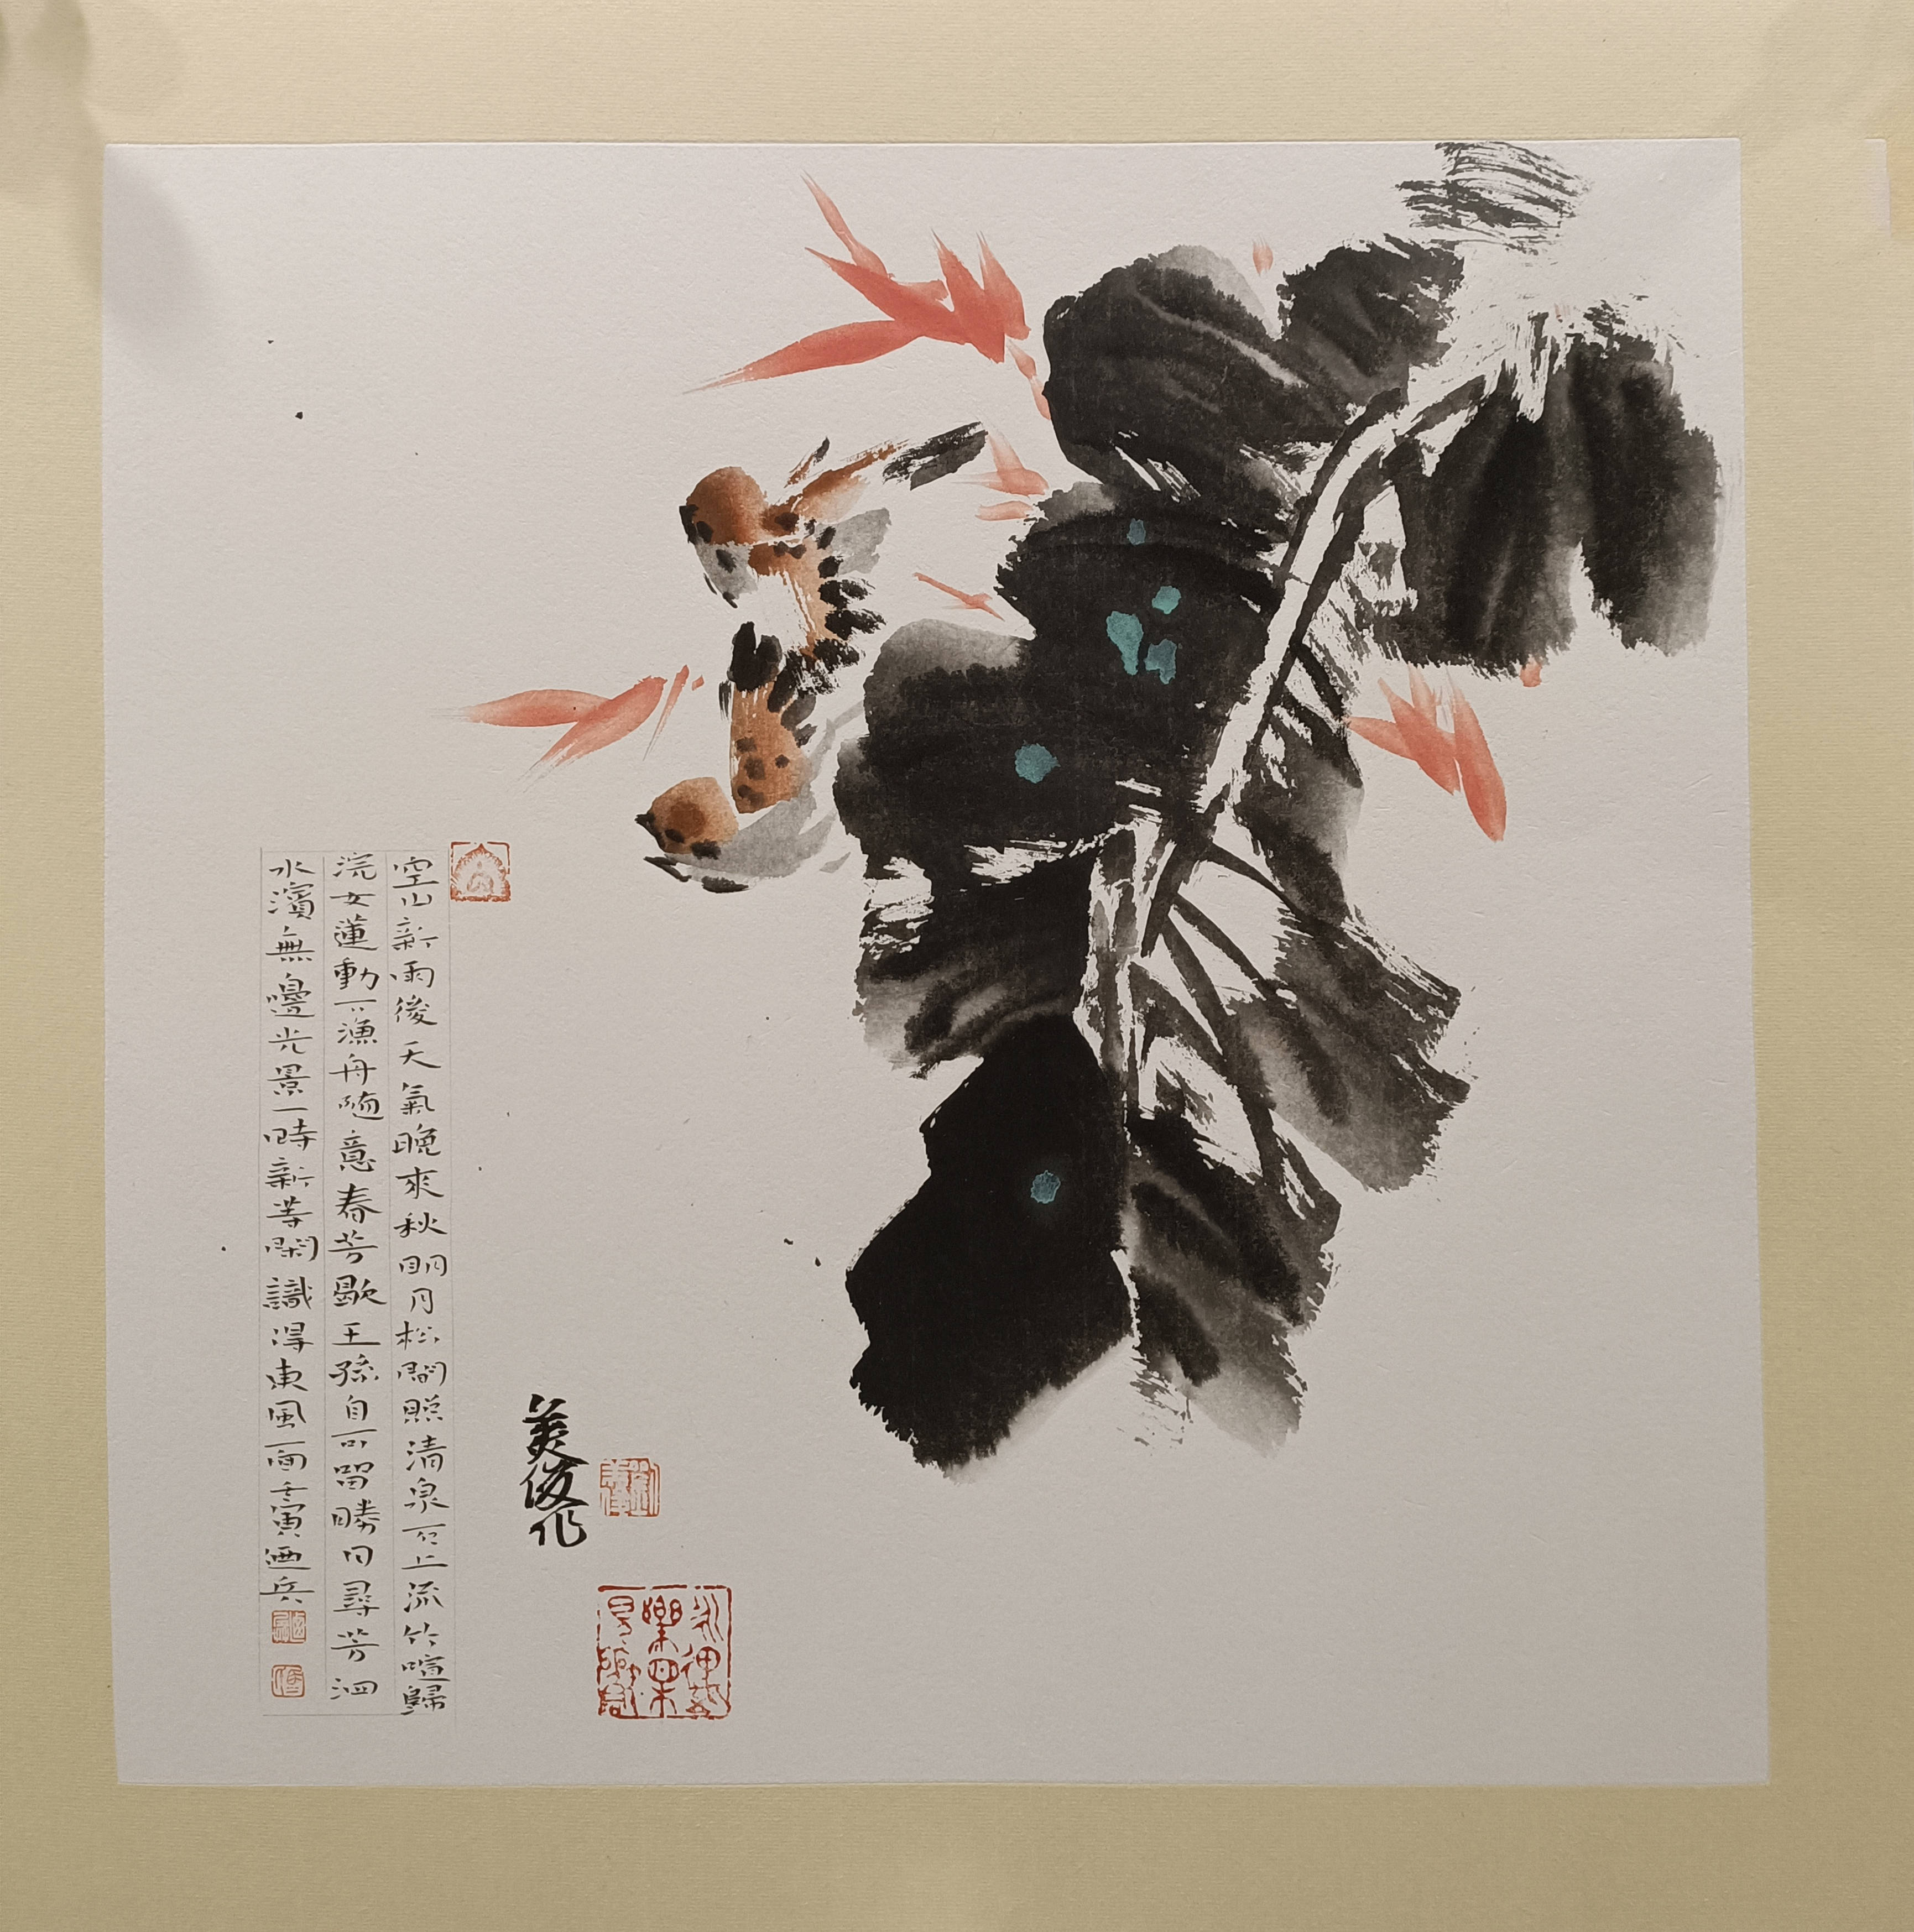 空山新雨後天氣晚來秋明月松間照清泉石上流竹喧歸
浣女蓮動下漁舟隨意春芳歇王孫自可留勝日尋芳泗
水濱無邊光景一時新等閑識得東風面壬寅迺兵
美俊作
劉美俊